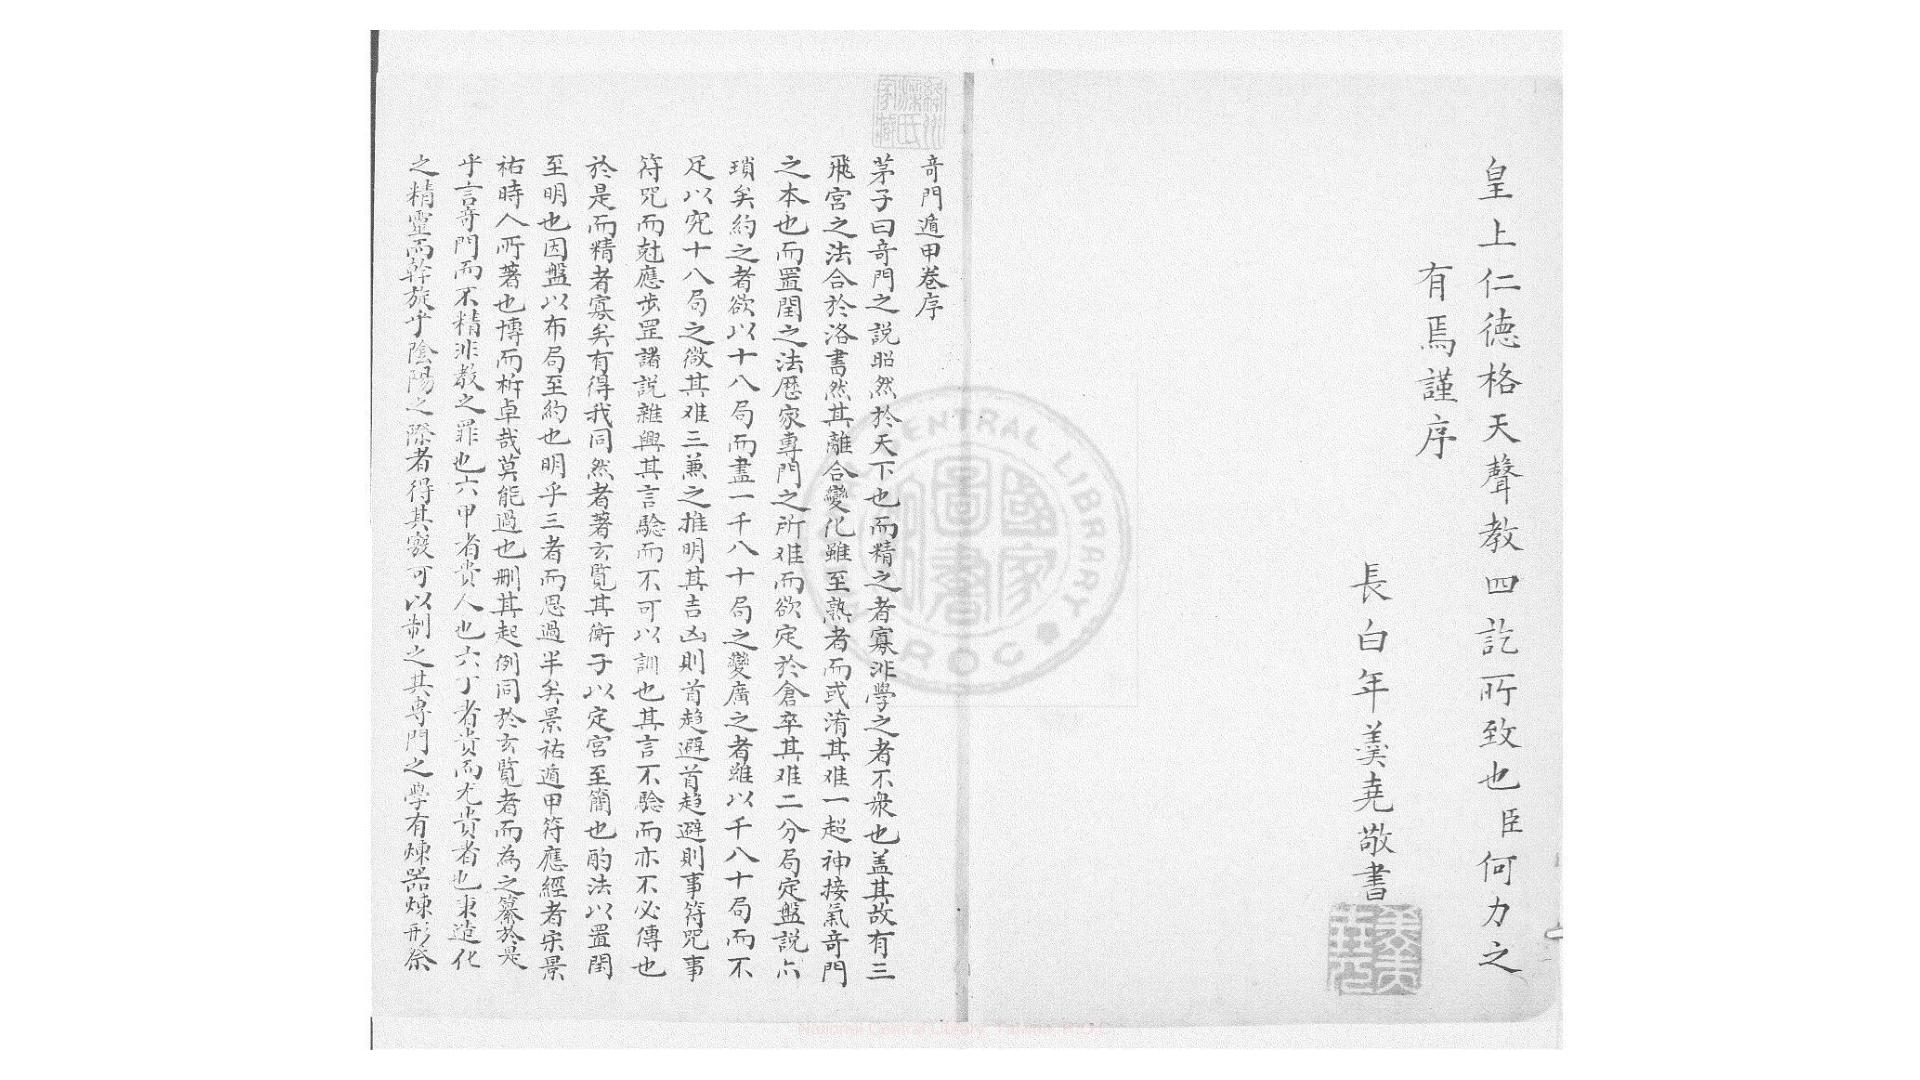 皇上仁德格天聲教四訖所致也臣何力之
有焉謹序
長白年羹堯敬書
奇門遁甲卷序
茅子曰奇門之説昭然於天下也而精之者寡非學之者不衆也盖其故有三
飛宮之法合於洛書然其離合變化雖至熟者而或淆其难一超神接氣奇門
之本也而置閏之法歷家專門之所难而欲定於倉卒其难二分局定盤説六
瑣矣約之者欲以十八局而盡一千八十局之變廣之者雖以千八十局而不
足以究十八局之微其难三兼之推明其吉凶則首趋避首趋避則事符咒事
符咒而尅應步罡諸説雜興其言騐而不可以訓也其言不騐而亦不必傳也
於是而精者寡矣有得我同然者著玄覧其衡子以定宮至簡也酌法以置閏
至明也因盤以布局至約也明乎三者而思過半矣景祐遁甲符應經者宋景
祐時人所著也博而析卓哉莫能過也删其起例同於玄覧者而為之纂於是
乎言奇門而不精非教之罪也六甲者贵人也六丁者贵而尤贵者也東造化
之精靈而幹旋乎陰陽之際者得其竅可以制之其專門之學有煉器煉形祭
NATIONAL CENTRAL LIBRARY R O C
國家圖書館
National Central Library, Taiwan, R.O.C